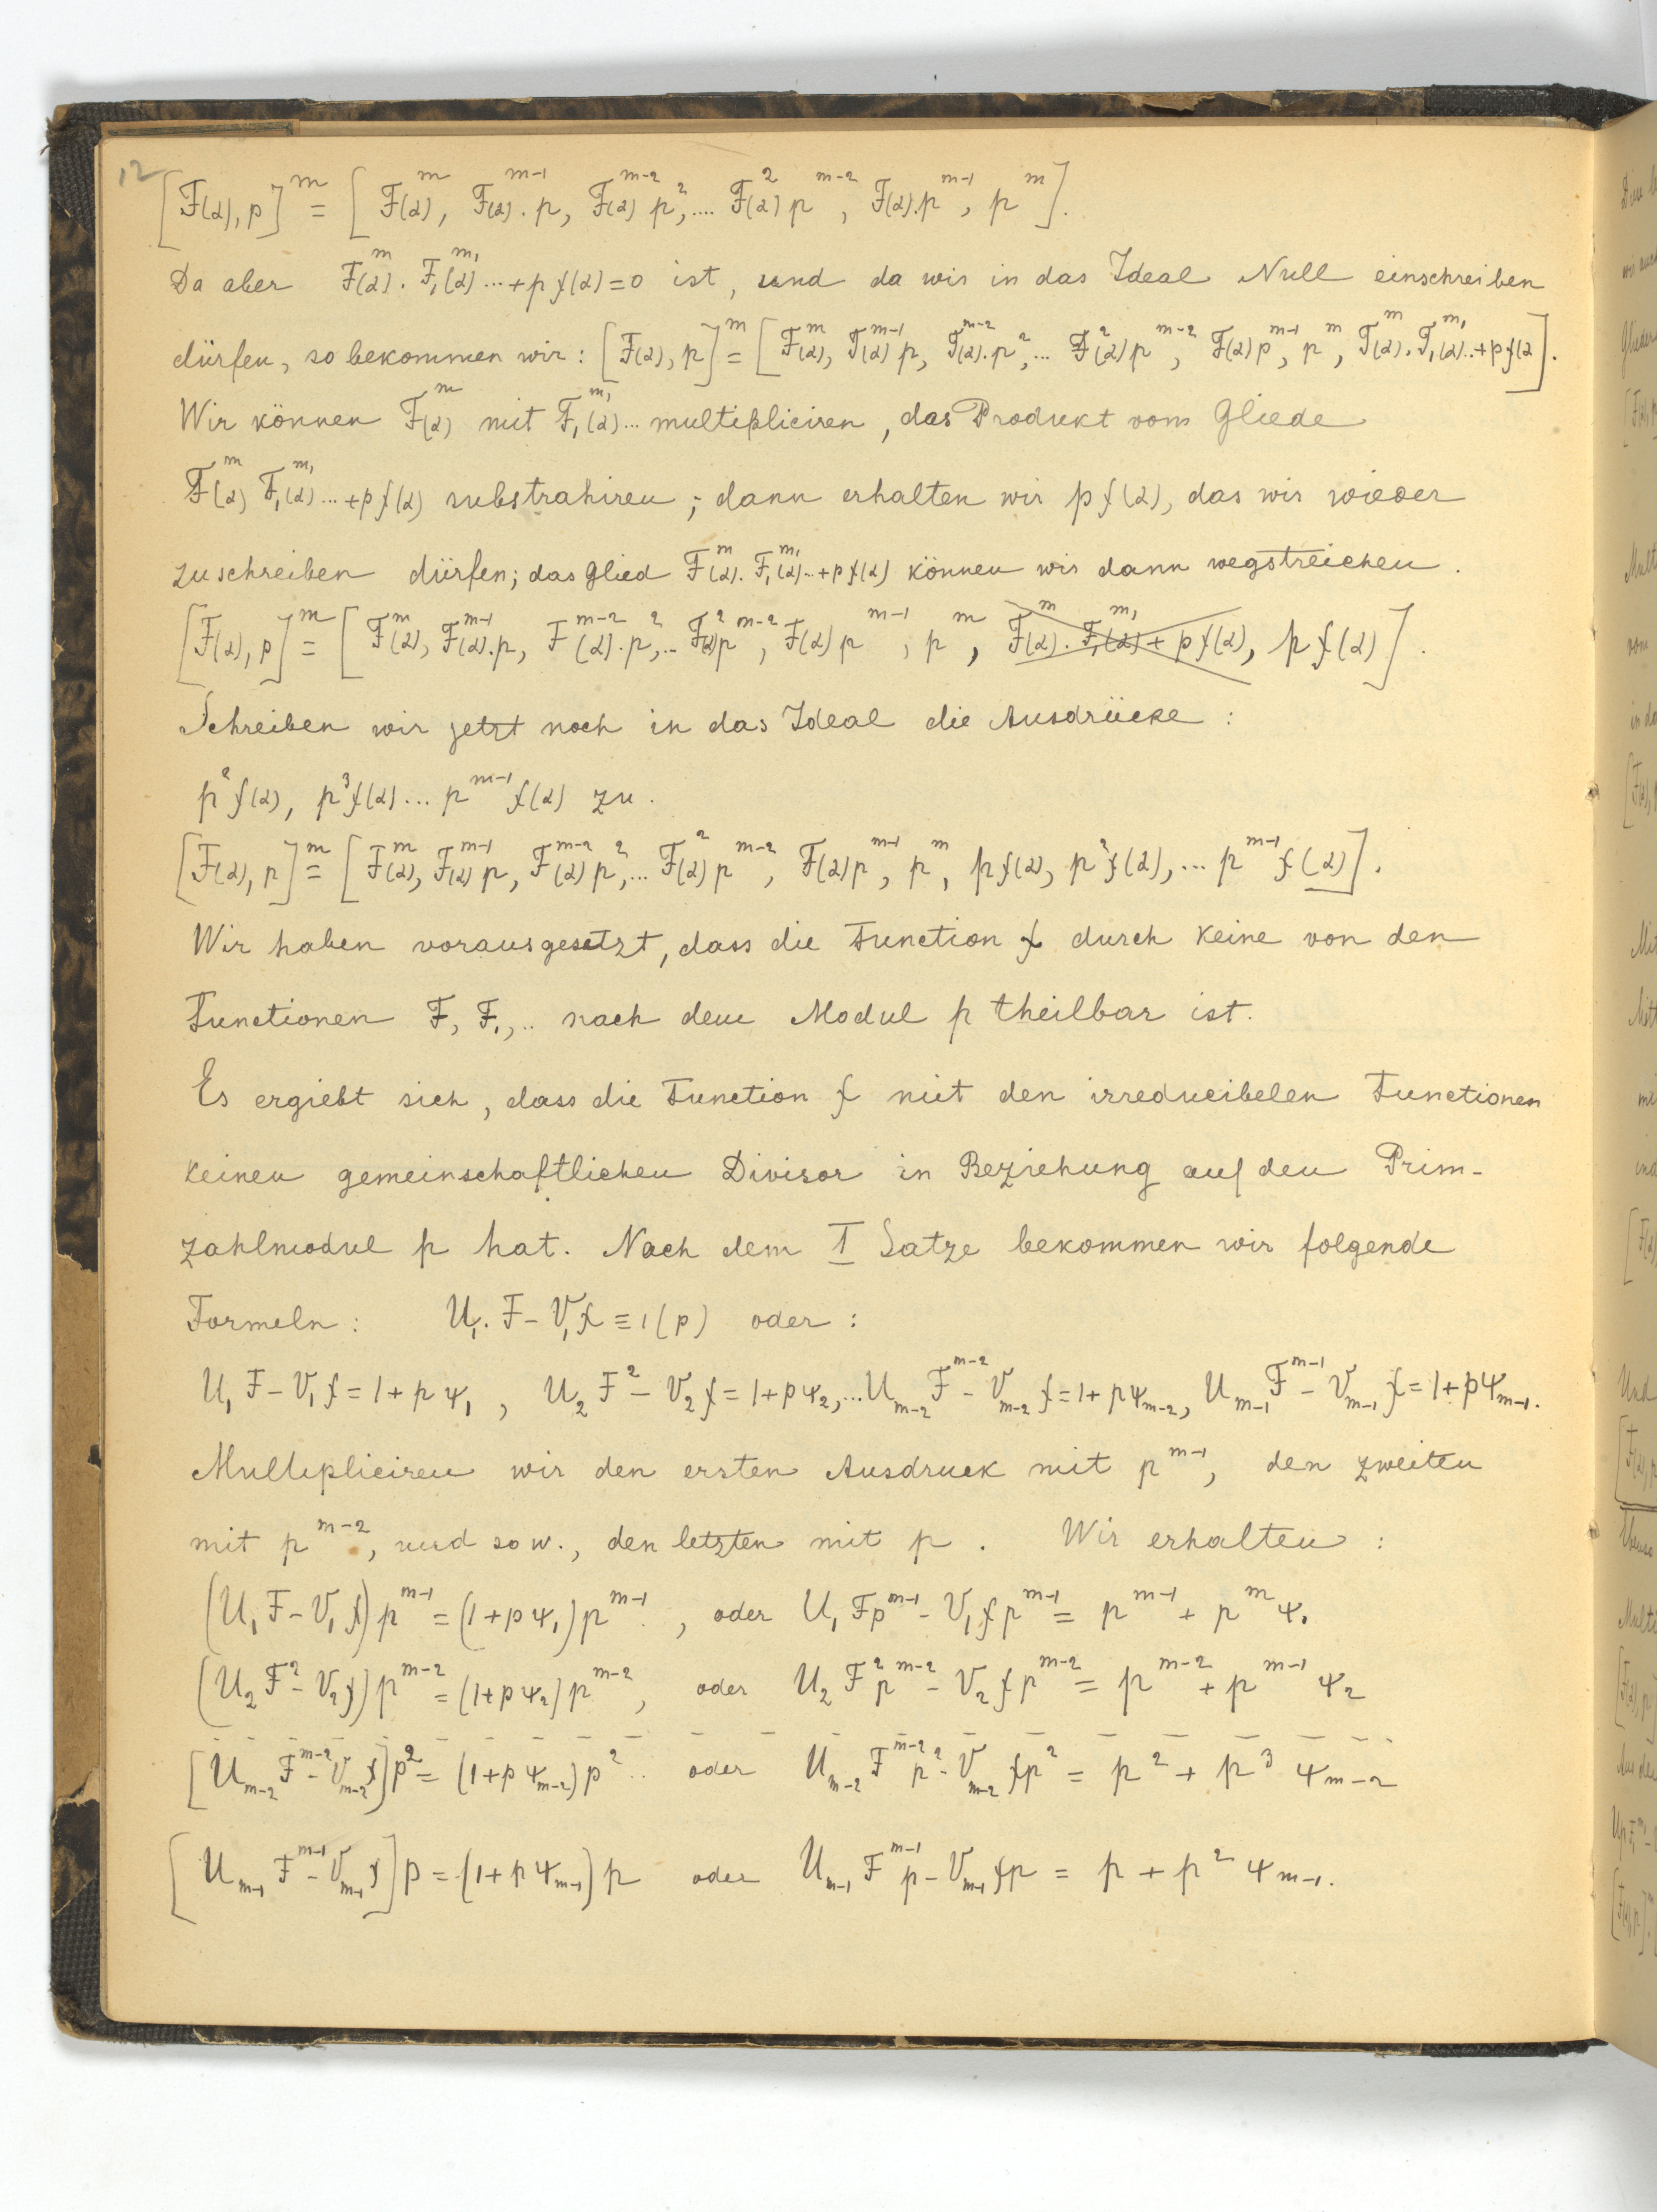 12
[F(α), p]^m = [F(α)^m, F(α)^{m-1}. p, F(α)^{m-2} p^2, .... F(α)^2 p^{m-2}, F(α).p^{m-1}, p^m].
Da aber F(α)^m. F_1(α)^{m_1} ... + p f(α) = 0 ist, und da wir in das Ideal Null einschreiben
dürfen, so bekommen wir: [F(α), p]^m = [F(α)^m, F(α)^{m-1} p, F(α)^{m-2}. p^2, ... F(α)^2 p^{m-2}, F(α) p^{m-1}, p^m, F(α)^m. F_1(α)^{m_1} .. + p f(α].
Wir können F(α)^m mit F_1(α)^{m_1} ... multipliciren, das Produkt vom Gliede
F(α)^m F_1(α)^{m_1} ... + p f(α) substrahiren; dann erhalten wir p f(α), das wir wieder
zuschreiben dürfen; das Glied F(α)^m. F_1(α)^{m_1} .. + p f(α) können wir dann wegstreichen.
[F(α), p]^m = [F(α)^m, F(α)^{m-1}. p, F(α)^{m-2}. p^2, .. F(α)^2 p^{m-2}, F(α) p^{m-1}, p^m, F(α)^m. F_1(α)^{m_1} + p f(α), p f(α)].
Schreiben wir jetzt noch in das Ideal die Ausdrücke:
p^2 f(α), p^3 f(α) ... p^{m-1} f(α) zu.
[F(α), p]^m = [F(α)^m, F(α)^{m-1} p, F(α)^{m-2} p^2, ... F(α)^2 p^{m-2}, F(α) p^{m-1}, p^m, p f(α), p^2 f(α), ... p^{m-1} f(α)].
Wir haben vorausgesetzt, dass die Function f durch keine von den
Functionen F, F_1, .. nach dem Modul p theilbar ist.
Es ergiebt sich, dass die Function f mit den irreducibelen Functionen
keinen gemeinschaftlichen Divisor in Beziehung auf den Prim-
zahlmodul p hat. Nach dem I Satze bekommen wir folgende
Formeln: U_1. F - V_1 f ≡ 1 (p) oder:
U_1 F - V_1 f = 1 + p ψ_1, U_2 F^2 - V_2 f = 1 + p ψ_2, ... U_{m-2} F^{m-2} - V_{m-2} f = 1 + p ψ_{m-2}, U_{m-1} F^{m-1} - V_{m-1} f = 1 + p ψ_{m-1}.
Multipliciren wir den ersten Ausdruck mit p^{m-1}, den zweiten
mit p^{m-2}, und so w., den letzten mit p. Wir erhalten:
(U_1 F - V_1 f) p^{m-1} = (1 + p ψ_1) p^{m-1}, oder U_1 F p^{m-1} - V_1 f p^{m-1} = p^{m-1} + p^m ψ_1
(U_2 F^2 - V_2 f) p^{m-2} = (1 + p ψ_2) p^{m-2}, oder U_2 F^2 p^{m-2} - V_2 f p^{m-2} = p^{m-2} + p^{m-1} ψ_2
[U_{m-2} F^{m-2} - V_{m-2} f] p^2 = (1 + p ψ_{m-2}) p^2 .. oder U_{m-2} F^{m-2} p^2 - V_{m-2} f p^2 = p^2 + p^3 ψ_{m-2}
[U_{m-1} F^{m-1} - V_{m-1} f] p = (1 + p ψ_{m-1}) p oder U_{m-1} F^{m-1} p - V_{m-1} f p = p + p^2 ψ_{m-1}.